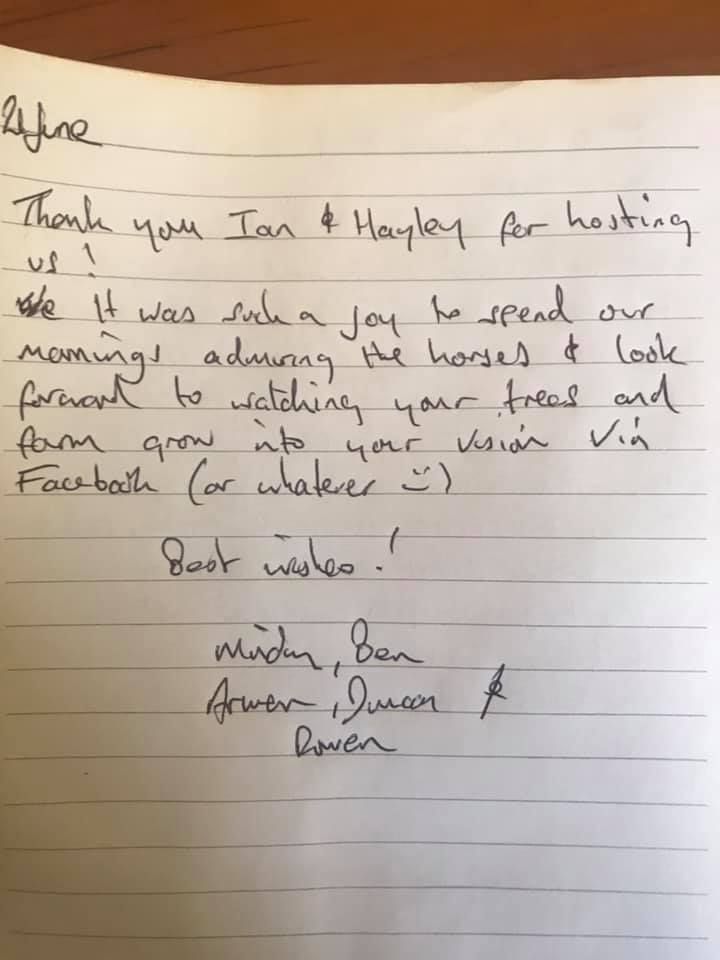 21 June
Thank you Ian & Hayley for hosting
us!
It was such a joy to spend our
mornings admiring the horses & look
forward to watching your trees and
farm grow into your vision via
Facebook (or whatever :)
Best wishes!
Ben
Arwen, Duncan &
Rowen